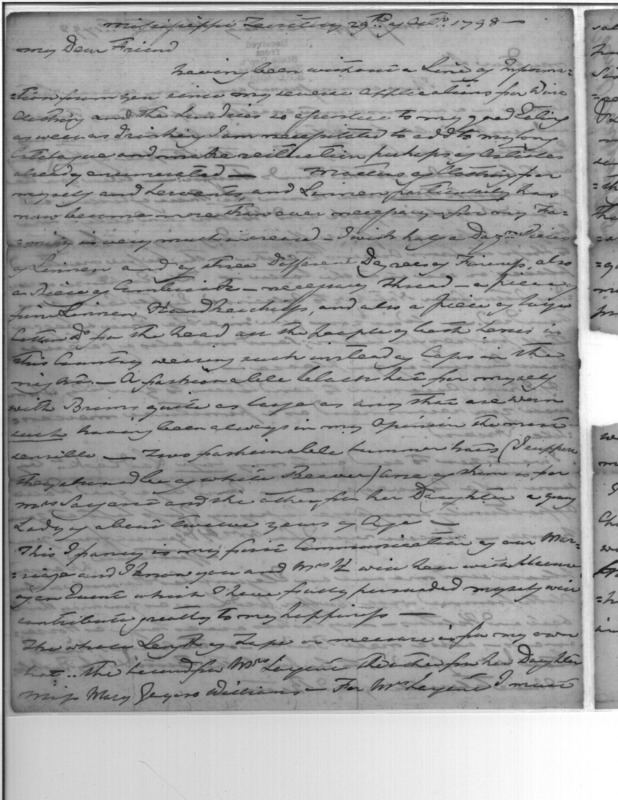 Mississippi Territory 29th of Decr. 1798 —
My Dear Friend
having been without a Line of Informa-
-tion from you since my several applications for Wine
Clothing and the Sundries so essential to my good Eating
as well as drinking I am necessitated to add to my long
Catalogue and make reiteration perhaps of Articles
already enumerated — Matters of Clothing for
myself and Servants, and Linnen particularly has
now become more than ever necessary — for my Fa-
-mily is very much increased — I wish half a Dozn Pieces
of Linnen and of three Different Degrees of Fineness, also
a Piece of Cambrick — necessary Thread — a piece
fine Linnen Handkerchiefs, and also a piece of large
Cotton Do for the head as the people of both sexes in
this Country wearing such instead of Caps in the
night. — A fashionable black hat for myself
with Brims quite as large as any that are worn
such having been always in my Opinion the most
sensible — Two fashionable summer hats (I suppose
they should be of white Beaver) one of them is for
Mrs Sargent and the other for her Daughter a young
Lady of about twelve years of Age —
This I fancy is my first Communication of our Mar-
-riage and I know you and Mrs. will hear with Pleasure
of an Event which I have fully persuaded myself will
contribute greatly to my happiness —
The whole Length of Tape in measure is for my own
hat .. the second for Mrs Sargent the other for her Daughter
Miss Mary Williams — For Mrs Sargent I must